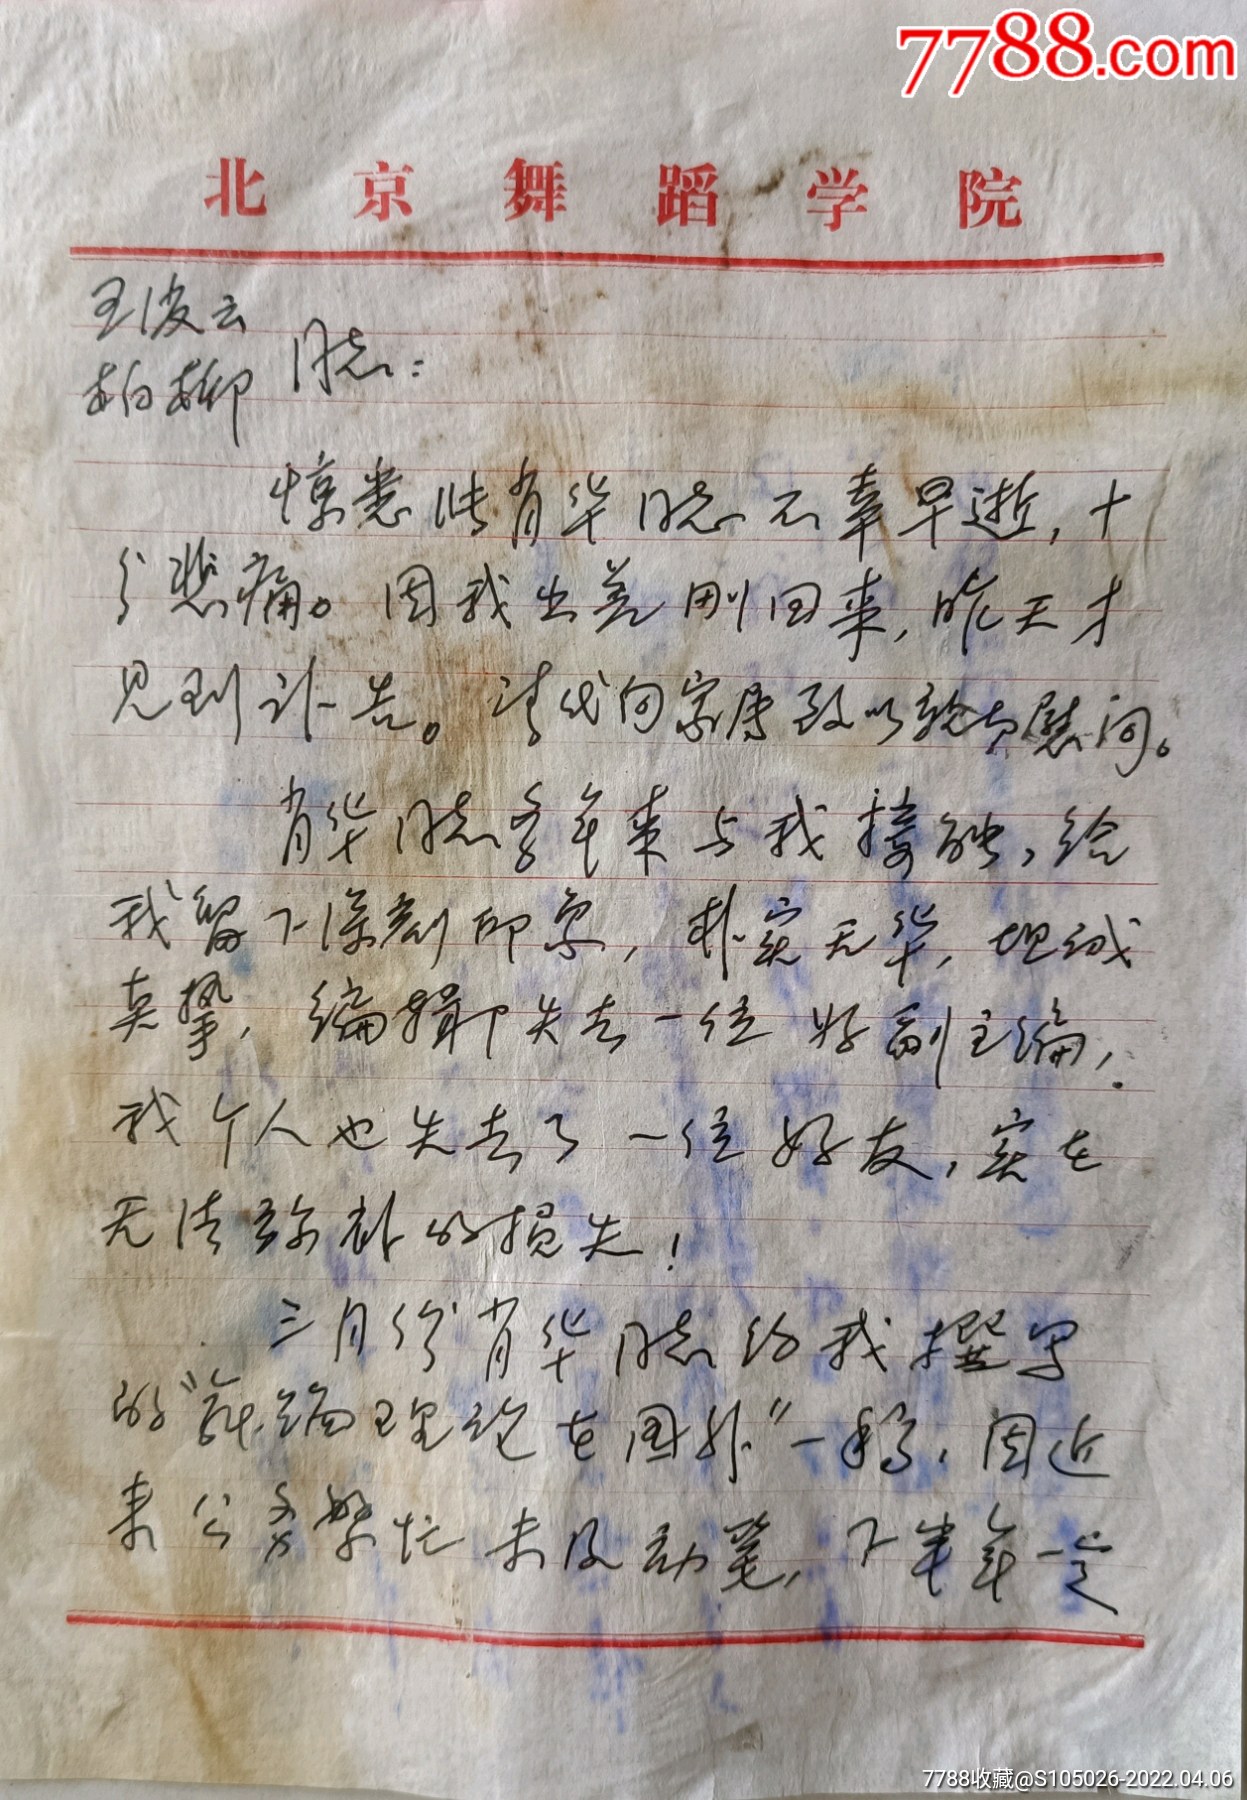 7788.com
北京舞蹈学院
王俊云
柏柳 同志:
惊悉张肖华同志不幸早逝,十
分悲痛。因我出差刚回来,昨天才
见到讣告。请代向家属致以亲切慰问。
肖华同志多年来与我接触,给
我留下深刻印象,朴实无华,坦诚
真挚,编辑部失去一位好副主编,
我个人也失去了一位好友,实在
无法弥补的损失!
三月份肖华同志约我撰写
的"舞蹈理论在国外"一稿,因近
来公务繁忙未及动笔,下半年一定
7788收藏@S105026-2022.04.06